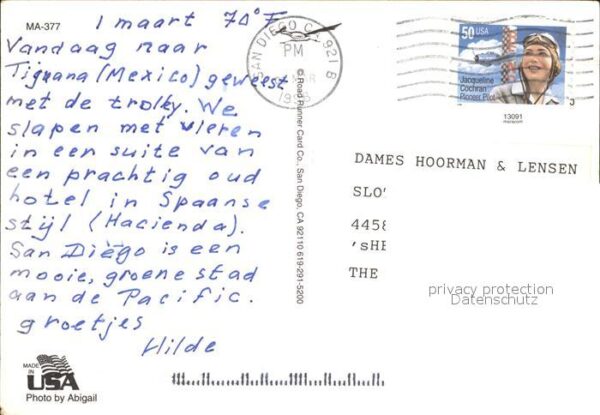 MA-377
1 maart 70°F
Vandaag naar
Tiguana (Mexico) geweest
met de trolly. We
slapen met vieren
in een suite van
een prachtig oud
hotel in Spaanse
stijl (Hacienda).
San Diëgo is een
mooie, groene stad
aan de Pacific.
groetjes
Hilde
MADE IN
USA
Photo by Abigail
© Road Runner Card Co., San Diego, CA 92110 619-291-5200
SAN DIEGO CA 921 8
PM
50 USA
Jacqueline
Cochran
Pioneer Pilot
13091
DAMES HOORMAN & LENSEN
SLO'
4458
'sHE
THE
privacy protection
Datenschutz